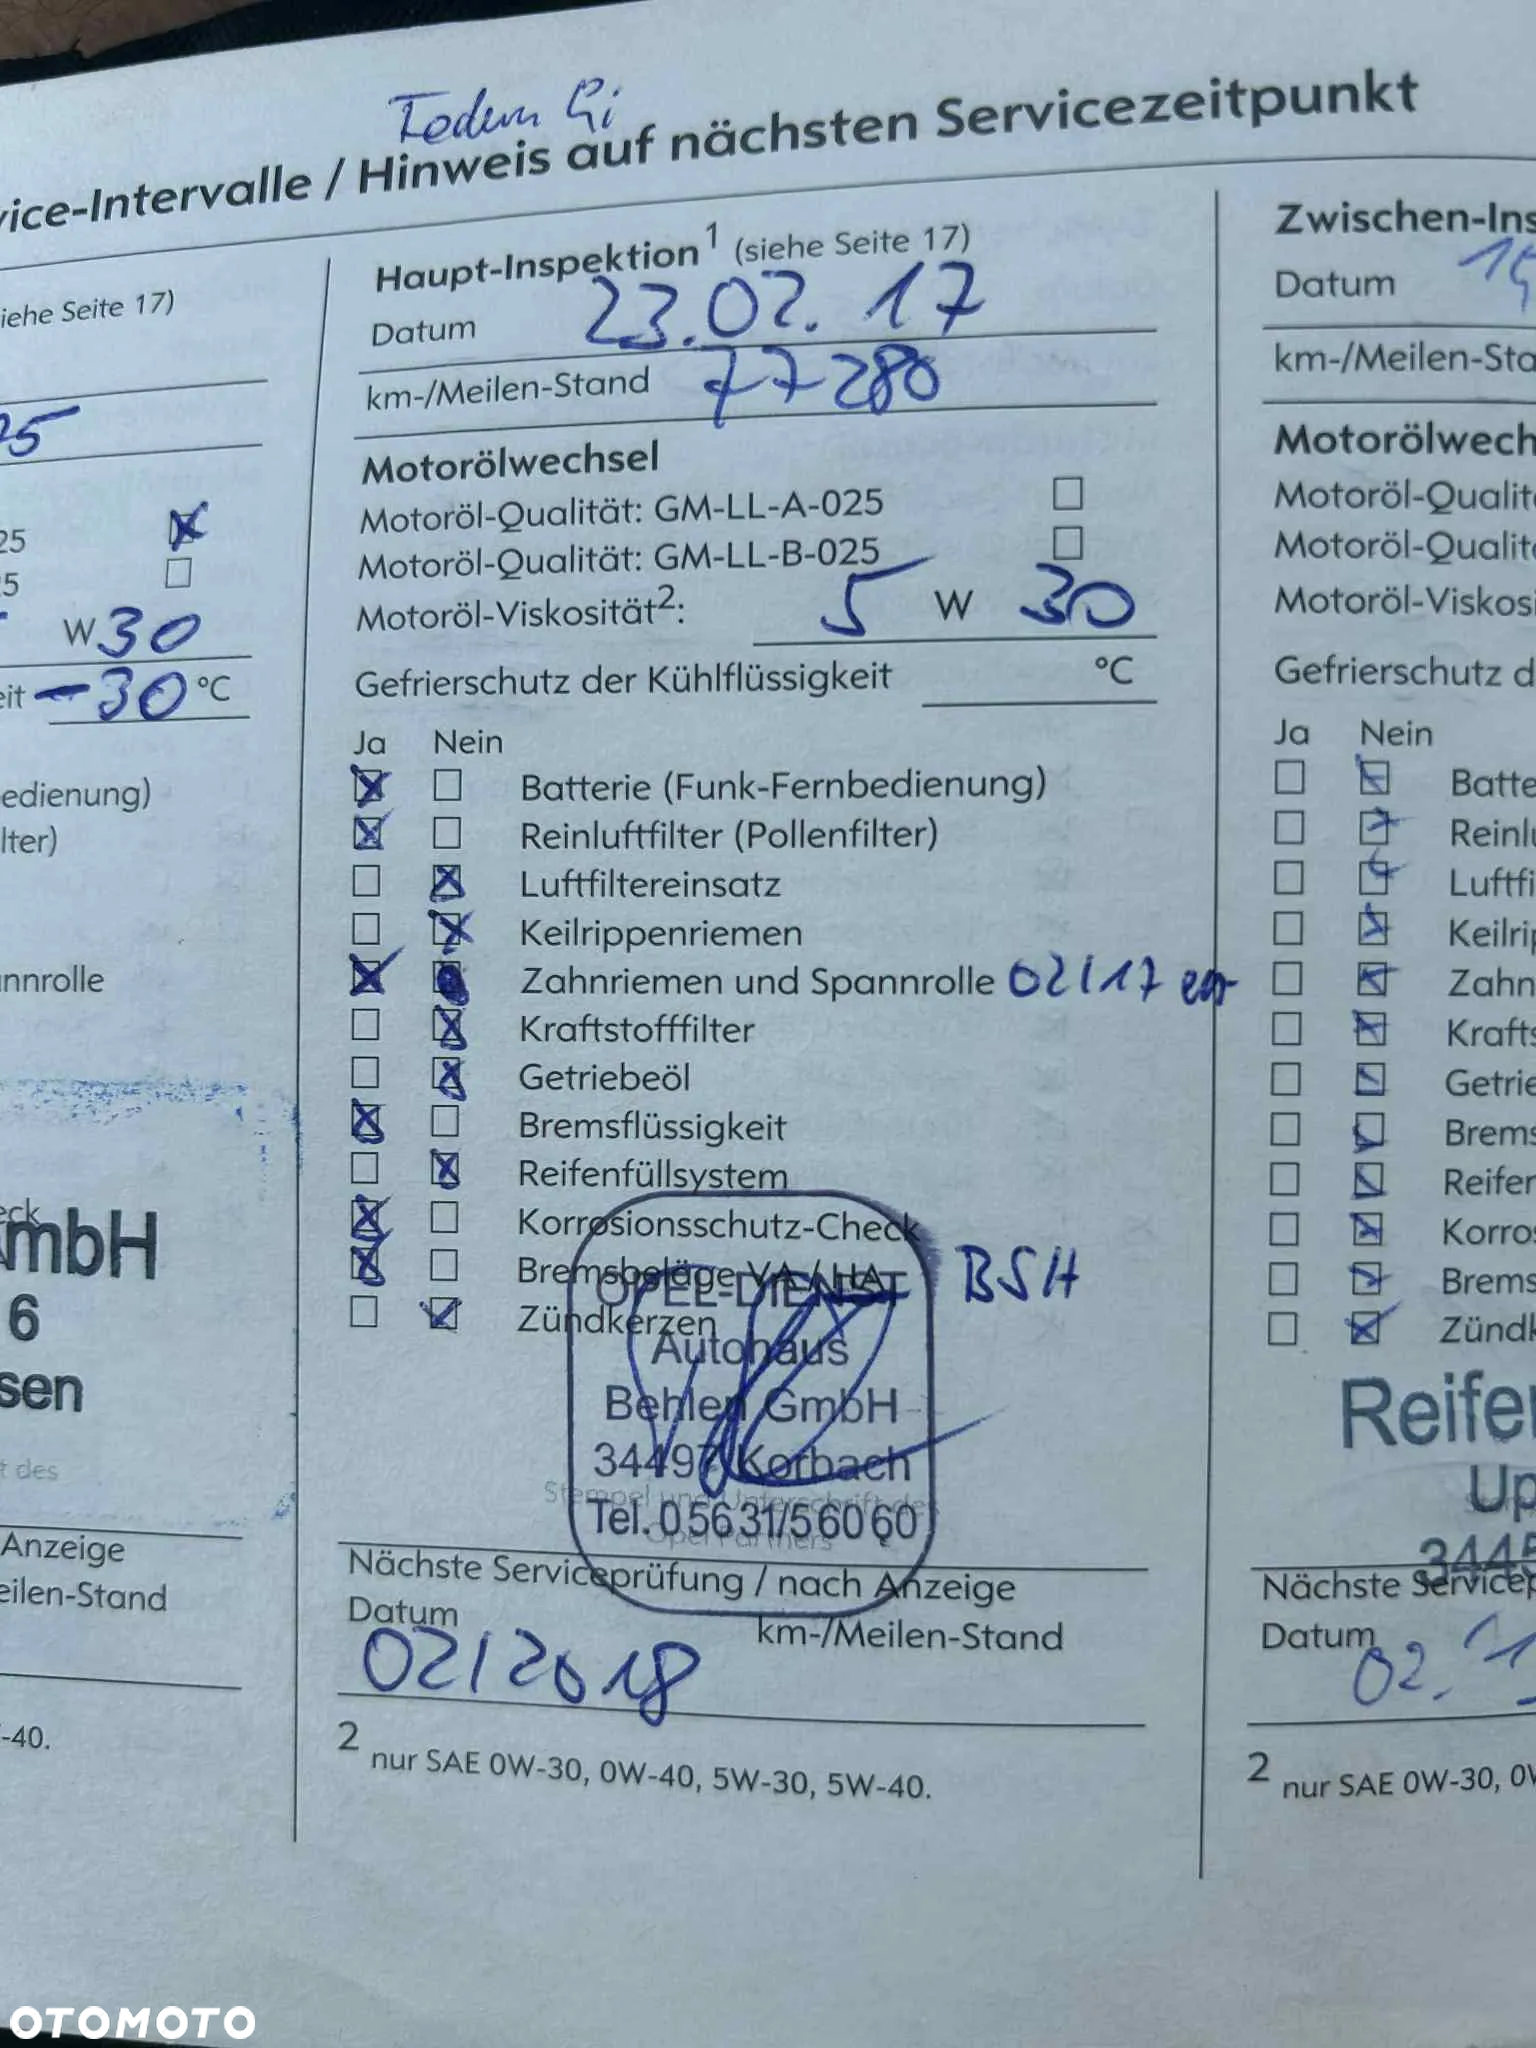 vice-Intervalle / Hinweis auf nächsten Servicezeitpunkt
iehe Seite 17)
25
25 ☒
5 ☐
W 30
eit -30 °C
edienung)
lter)
nnrolle
eck
mbH
6
sen
t des
Anzeige
eilen-Stand
-40.
Haupt-Inspektion¹ (siehe Seite 17)
Datum 23.02.17
km-/Meilen-Stand 77280
Motorölwechsel
Motoröl-Qualität: GM-LL-A-025 ☐
Motoröl-Qualität: GM-LL-B-025 ☐
Motoröl-Viskosität²: 5 W 30
Gefrierschutz der Kühlflüssigkeit °C
Ja Nein
☒ ☐ Batterie (Funk-Fernbedienung)
☒ ☐ Reinluftfilter (Pollenfilter)
☐ ☒ Luftfiltereinsatz
☐ ☒ Keilrippenriemen
☒ Zahnriemen und Spannrolle 02/17
☐ ☒ Kraftstofffilter
☐ ☒ Getriebeöl
☒ ☐ Bremsflüssigkeit
☐ ☒ Reifenfüllsystem
☒ ☐ Korrosionsschutz-Check
☒ ☐ Bremsbeläge VA / HA BSH
☐ ☒ Zündkerzen
OPEL-DIENST
Autohaus
Behlen GmbH
34497 Korbach
Tel. 05631/56060
Stempel und Unterschrift des
Opel Partners
Nächste Serviceprüfung / nach Anzeige
Datum km-/Meilen-Stand
02/2018
2 nur SAE 0W-30, 0W-40, 5W-30, 5W-40.
Zwischen-Ins
Datum
km-/Meilen-Sta
Motorölwech
Motoröl-Qualit
Motoröl-Qualit
Motoröl-Viskosi
Gefrierschutz d
Ja Nein
☐ ☒ Batte
☐ ☒ Reinlu
☐ ☒ Luftfi
☐ ☒ Keilrip
☐ ☒ Zahn
☐ ☒ Krafts
☐ ☒ Getrie
☐ ☒ Brems
☐ ☒ Reifer
☐ ☒ Korros
☐ ☒ Brems
☐ ☒ Zündk
Reifen
Up
3445
Nächste Servicep
Datum
02.1
2 nur SAE 0W-30, 0W
OTOMOTO